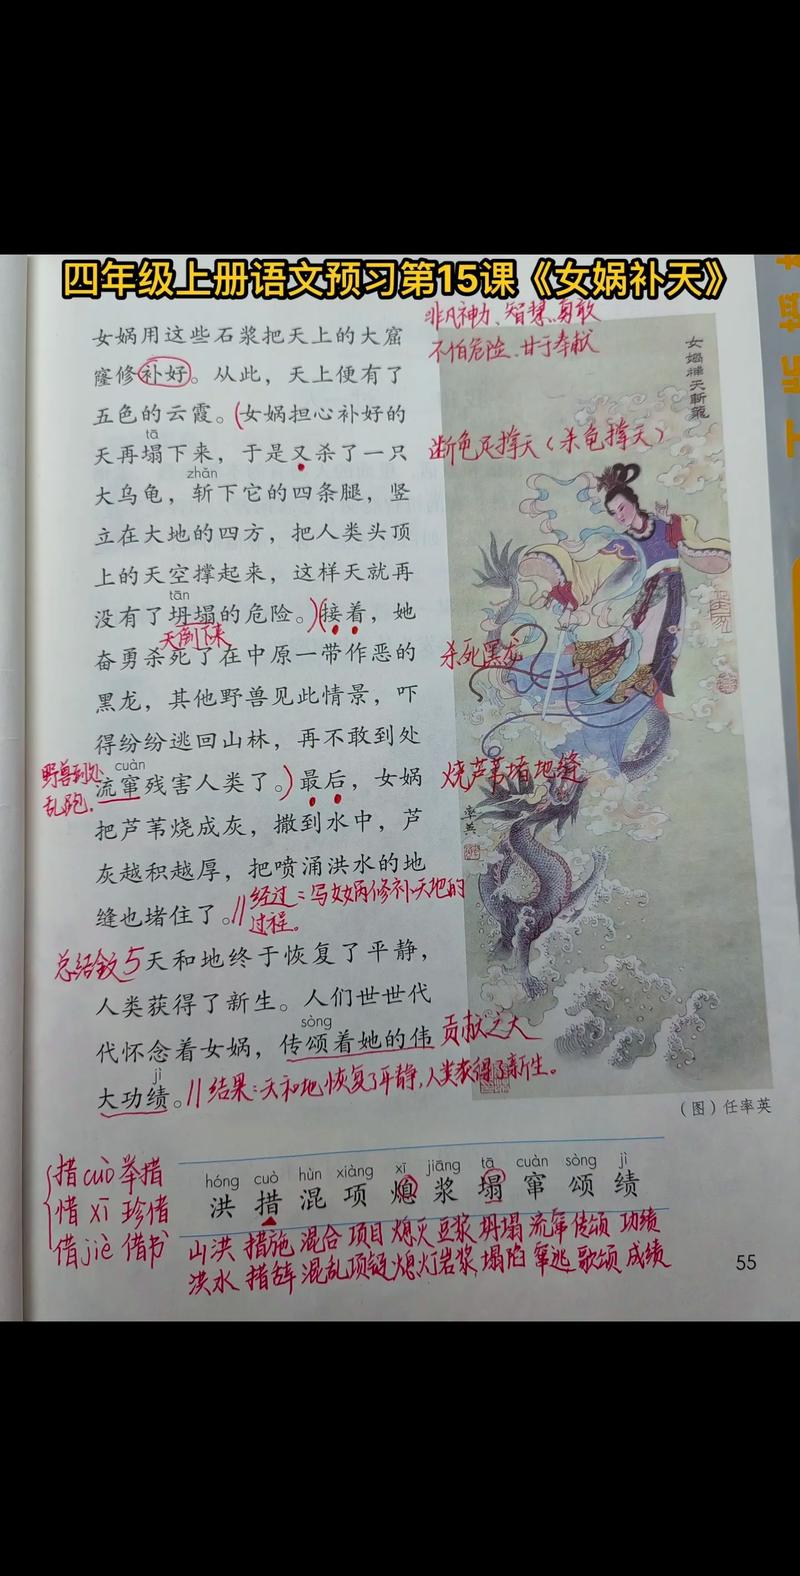 四年级上册语文预习第15课《女娲补天》
非凡神力、智慧、勇敢
不怕危险、甘于奉献
女娲用这些石浆把天上的大窟
窿修补好。从此，天上便有了
五色的云霞。(女娲担心补好的
tā
天再塌下来，于是又杀了一只
断龟足撑天(杀龟撑天)
zhǎn
大乌龟，斩下它的四条腿，竖
立在大地的四方，把人类头顶
上的天空撑起来，这样天就再
tān
没有了坍塌的危险。)(接着，她
天倒下来
奋勇杀死了在中原一带作恶的
杀死黑龙
黑龙，其他野兽见此情景，吓
得纷纷逃回山林，再不敢到处
cuàn
流窜残害人类了。)最后，女娲
野兽到处
乱跑.
烧芦苇堵地缝
把芦苇烧成灰，撒到水中，芦
灰越积越厚，把喷涌洪水的地
缝也堵住了。
∥经过：写女娲修补天地的
过程。
总结全文5
天和地终于恢复了平静，
人类获得了新生。人们世世代
sòng
代怀念着女娲，传颂着她的伟
贡献之大
jì
大功绩。
∥结果：天和地恢复了平静，人类获得了新生。
女娲补天斩龙
率英
(图)任率英
hóng cuò hùn xiàng xī jiāng tā cuàn sòng jì
洪 措 混 项 熄 浆 塌 窜 颂 绩
措cuò举措
惜 xī 珍惜
借jiè 借书
山洪 措施 混合 项目 熄灭 豆浆 坍塌 流窜 传颂 功绩
洪水 措辞 混乱 项链 熄灯 岩浆 塌陷 窜逃 歌颂 成绩
55